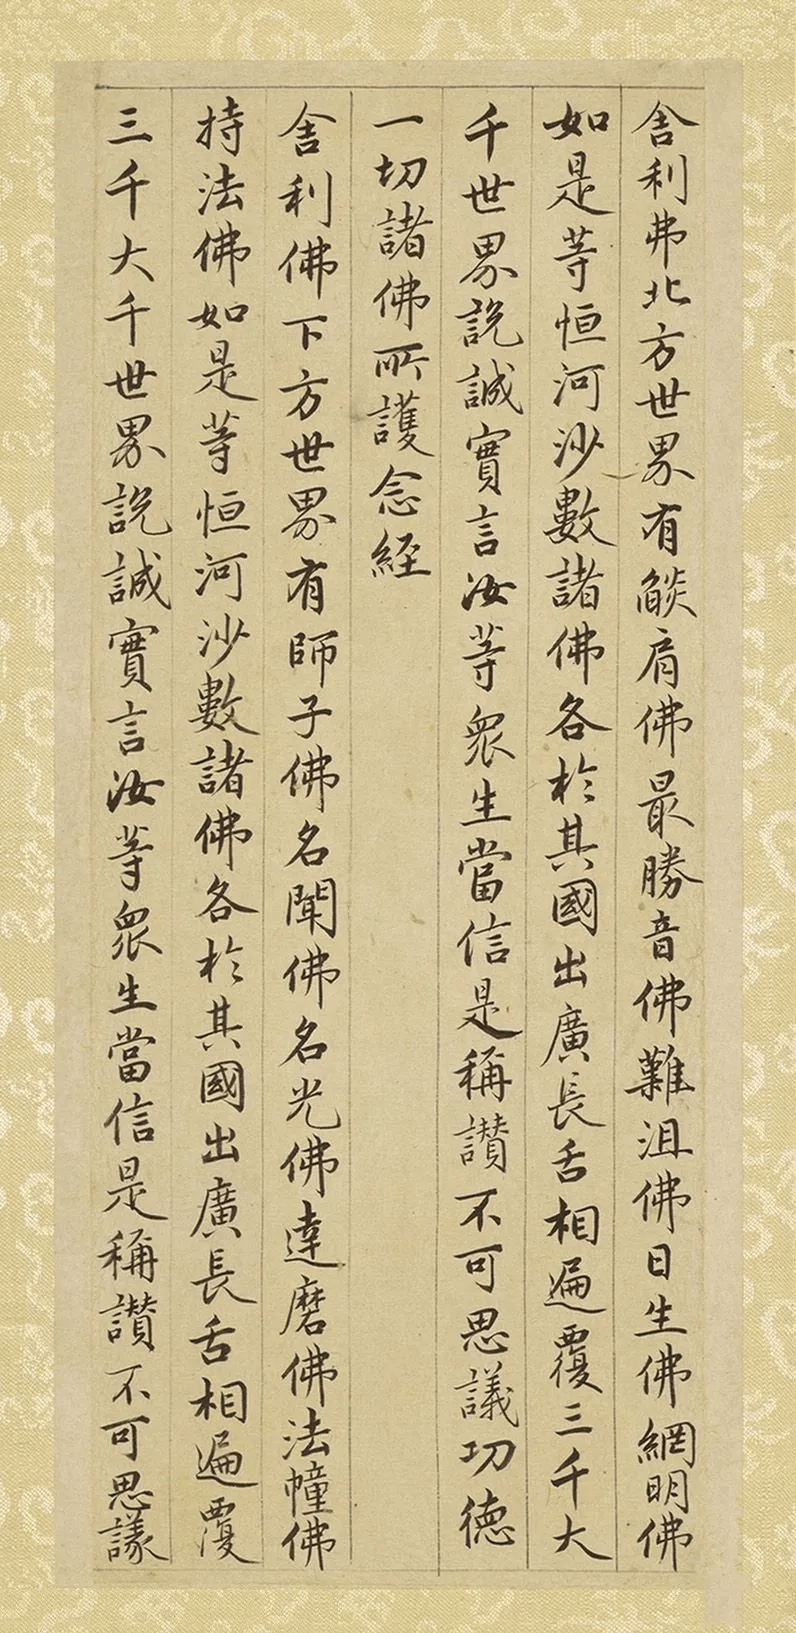 舍利弗北方世界有燄肩佛最勝音佛難沮佛日生佛網明佛
如是等恒河沙數諸佛各於其國出廣長舌相遍覆三千大
千世界説誠實言汝等衆生當信是稱讚不可思議功德
一切諸佛所護念經
舍利佛下方世界有師子佛名聞佛名光佛達磨佛法幢佛
持法佛如是等恒河沙數諸佛各於其國出廣長舌相遍覆
三千大千世界説誠實言汝等衆生當信是稱讚不可思議